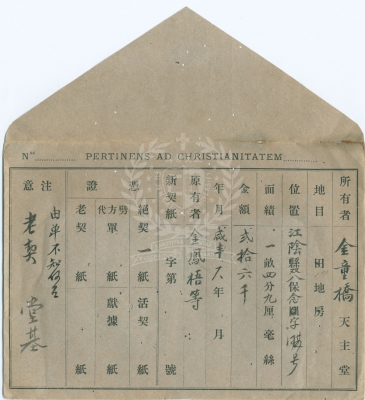 Nº PERTINENS AD CHRISTIANITATEM
所有者 金童橋 天主堂
地目 田地房
位置 江陰縣 八保念圖字 號
面績 一畝四分九厘毫絲
金額 貳拾六千
年月 咸丰八年 月
原有者 金鳳梧等
新契紙 字第 號
憑證
絕契 一 紙 活契 紙
代方 單 紙 獻據 紙
老契 紙 紙
注意
由單不知何
老契 堂基